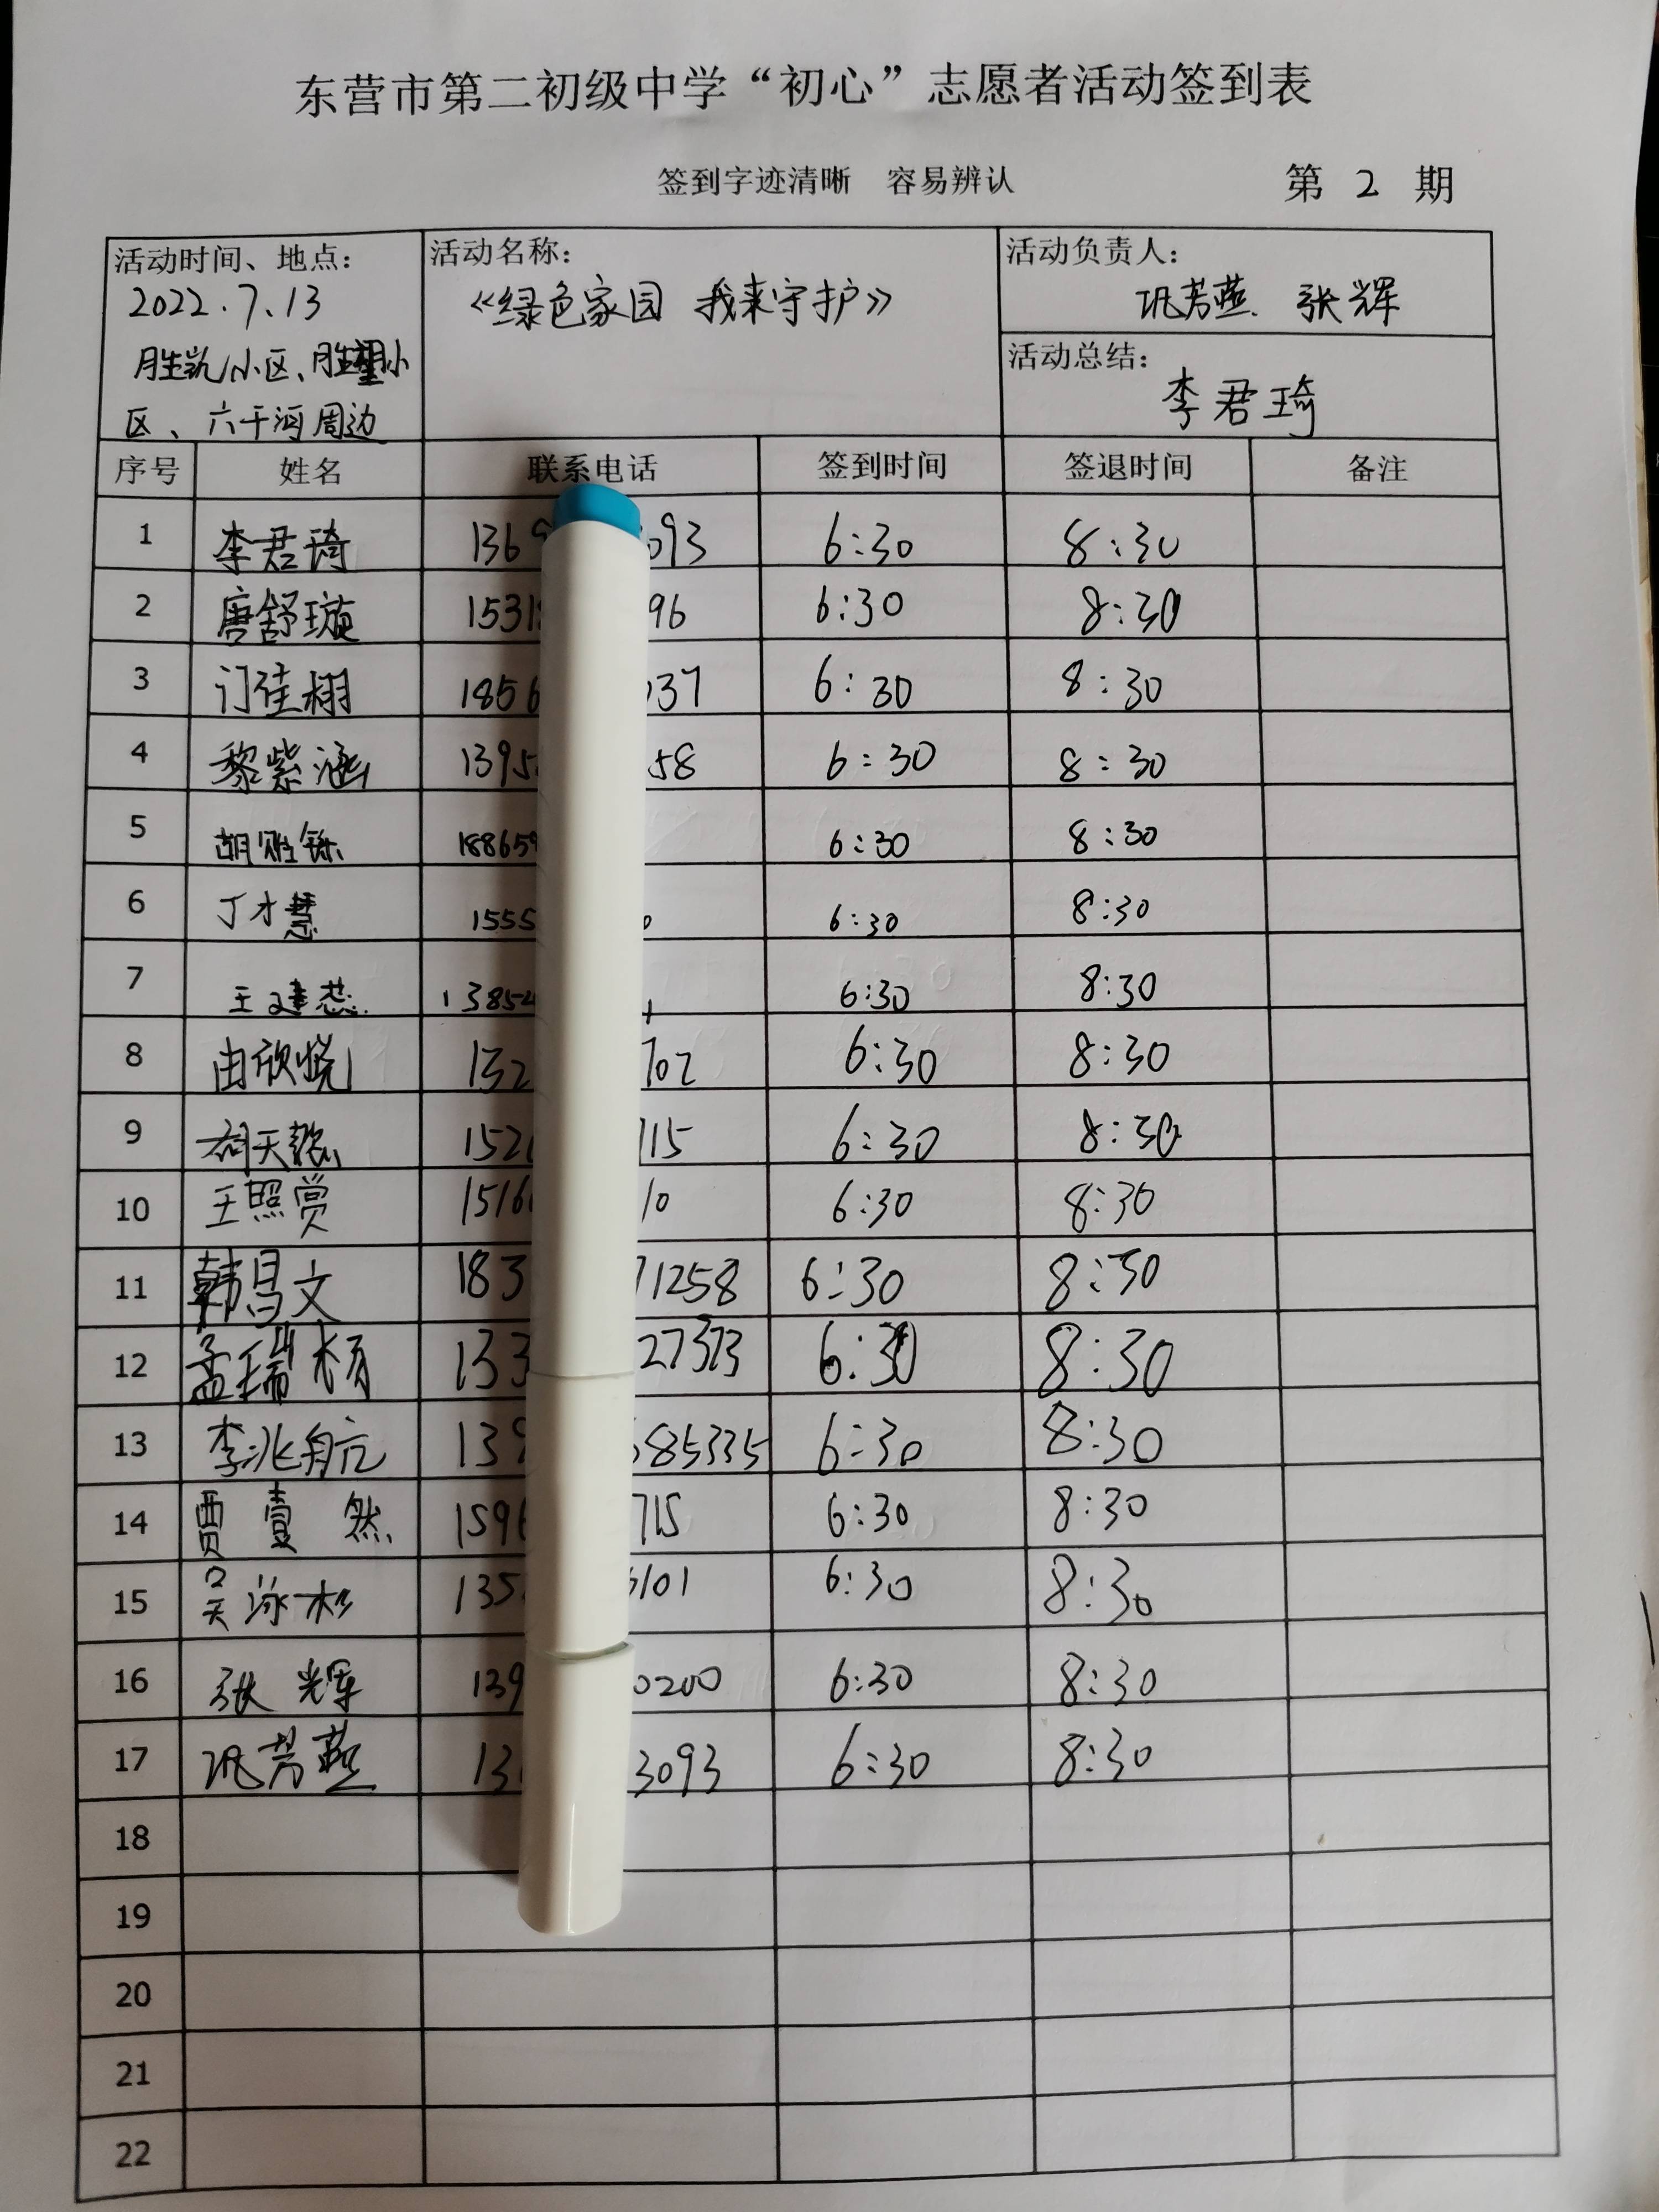 东营市第二初级中学“初心”志愿者活动签到表
签到字迹清晰 容易辨认 第 2 期
活动时间、地点： 活动名称： 活动负责人：
2022.7.13 《绿色家园 我来守护》 巩芳燕 张辉
胜凯小区、胜望小 活动总结：
区、六干河周边 李君琦
序号 姓名 联系电话 签到时间 签退时间 备注
1 李君琦 136 093 6:30 8:30
2 唐舒璇 1531 96 6:30 8:30
3 门佳栩 1856 37 6:30 8:30
4 黎紫涵 1395 58 6:30 8:30
5 胡 188659 6:30 8:30
6 丁才慧 1555 0 6:30 8:30
7 王建蕊 13854 6:30 8:30
8 由欣悦 132 702 6:30 8:30
9 152 115 6:30 8:30
10 王照赏 1516 10 6:30 8:30
11 韩昌文 183 71258 6:30 8:30
12 孟瑞楠 133 27373 6:30 8:30
13 李兆航 139 685335 6:30 8:30
14 贾壹然 1596 715 6:30 8:30
15 吴泳杉 135 101 6:30 8:30
16 张辉 139 0200 6:30 8:30
17 巩芳燕 13 3093 6:30 8:30
18
19
20
21
22